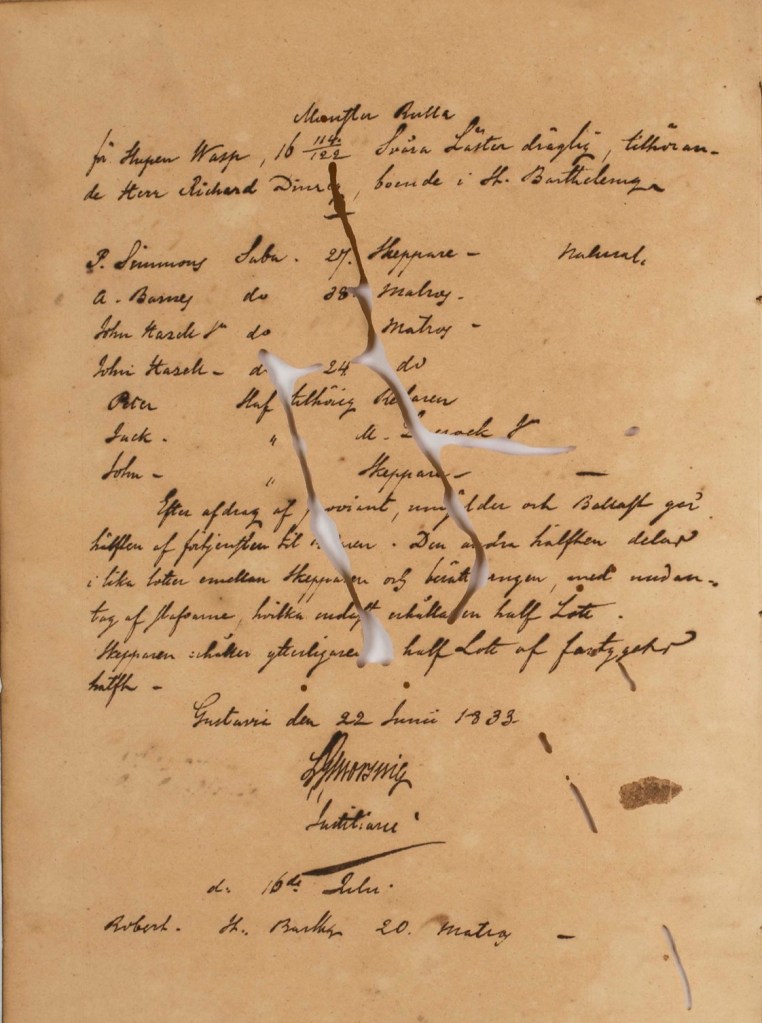 Mönster Rulla
för Slupen Wasp, 16 114/122 Svåra Läster dräglig, tillhöran-
de Herr Richard, boende i St. Barthelemy
P. Simmons Saba. 27. Skeppare - Natural.
A. Barnes do 38 Matros.
John Hassell Jr do Matros -
John Hassell - 24 do
Peter Slaf tillhörig Redaren
Jack. " M.
John - " Skeppare - -
Efter afdrag af proviant, och Ballast ger
hälften af förtjensten til. Den andra hälften delas
i lika lotter emellan Skepparen och, med undan-
tag af slafvarne, hvilka endast erhålla en half Lott.
Skepparen erhåller ytterligare half Lott af fartygets
hälft -
Gustavia den 22 Junii 1833.
Justitiarie
d: 16de Julii.
Robert. St. Barthy 20. Matros -